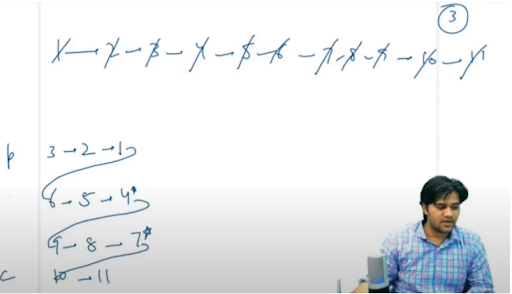 3
1 → 2 → 3 → 4 → 5 → 6 → 7 → 8 → 9 → 10 → 11
p 3 → 2 → 1
6 → 5 → 4
9 → 8 → 7
c 10 → 11